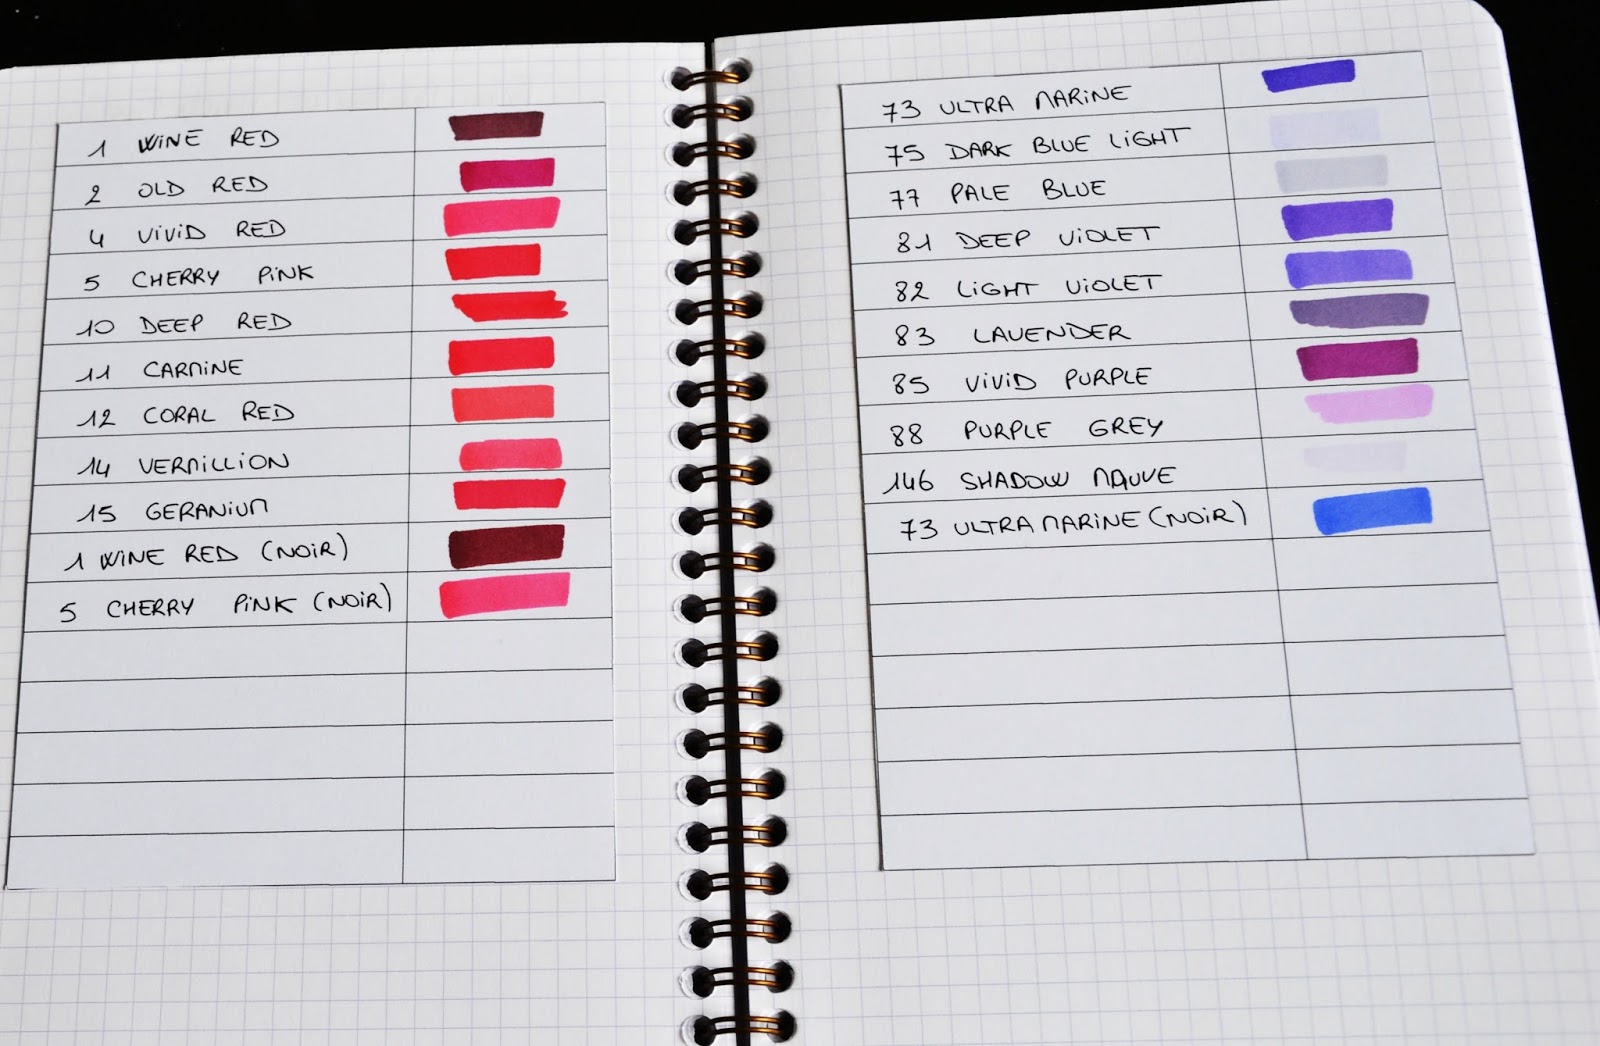 1 WINE RED
2 OLD RED
4 VIVID RED
5 CHERRY PINK
10 DEEP RED
11 CARMINE
12 CORAL RED
14 VERMILLION
15 GERANIUM
1 WINE RED (NOIR)
5 CHERRY PINK (NOIR)
73 ULTRA MARINE
75 DARK BLUE LIGHT
77 PALE BLUE
81 DEEP VIOLET
82 LIGHT VIOLET
83 LAVENDER
85 VIVID PURPLE
88 PURPLE GREY
146 SHADOW MAUVE
73 ULTRA MARINE (NOIR)